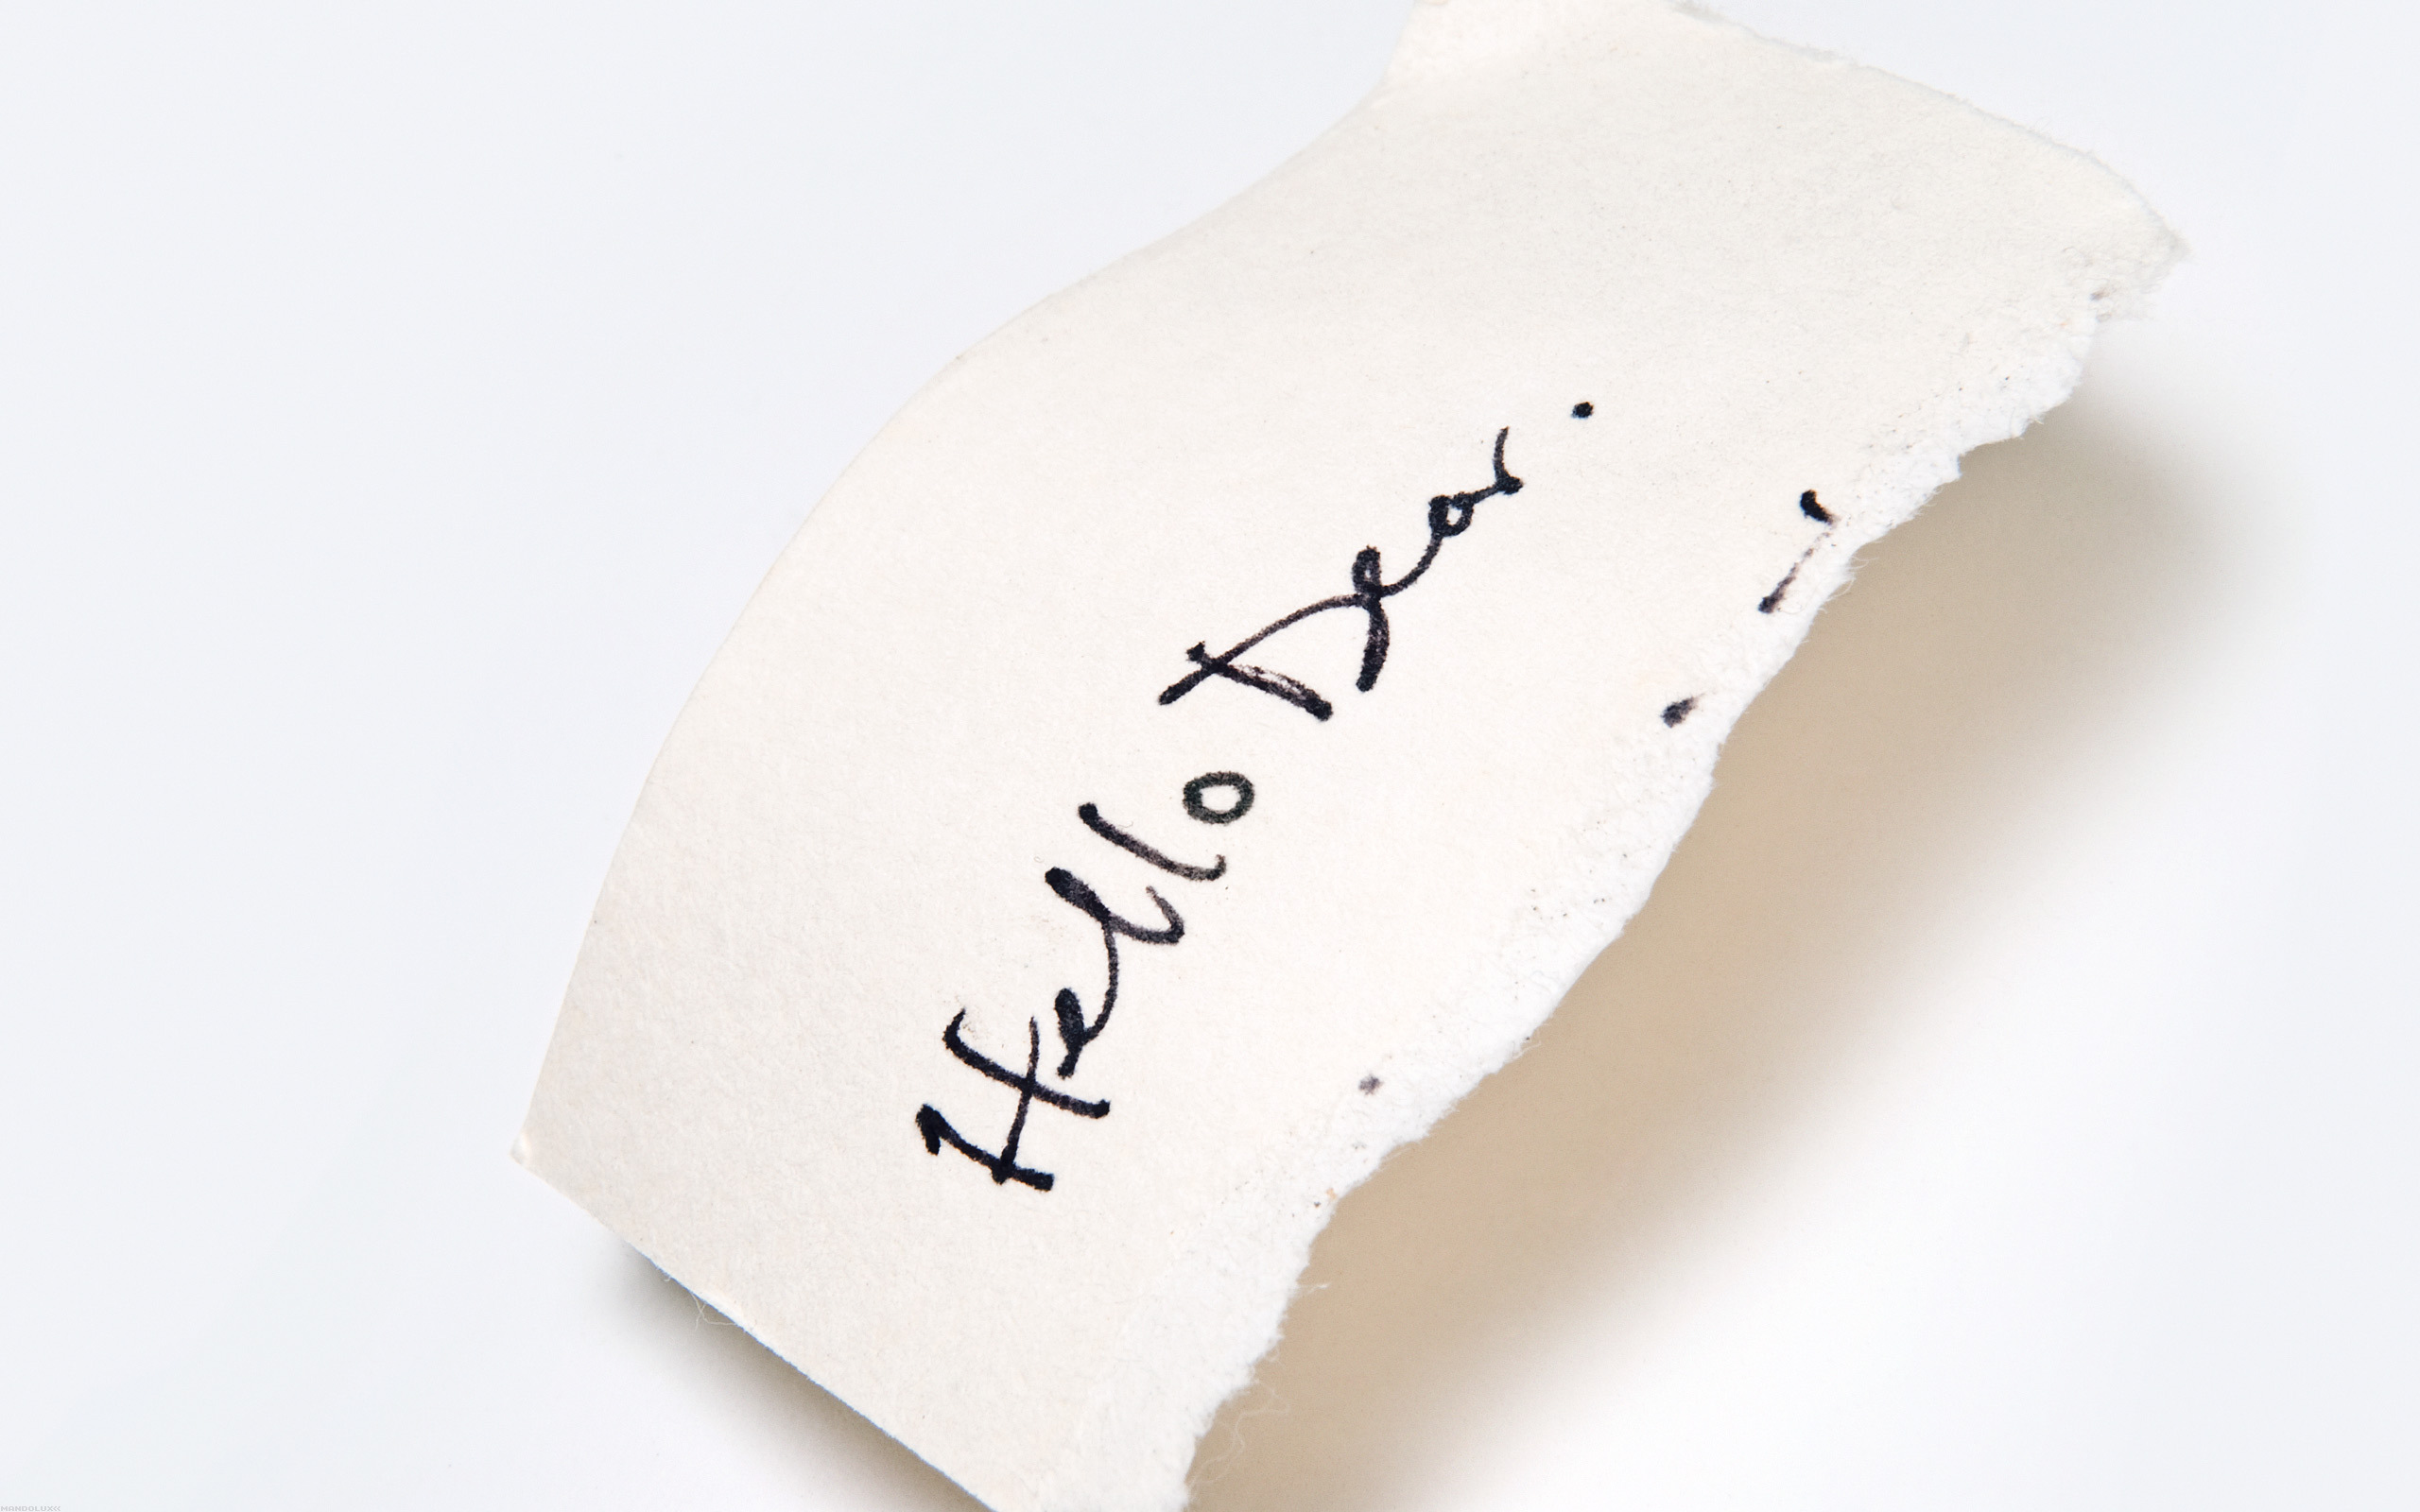 Hello Dear.
MANDOLUX